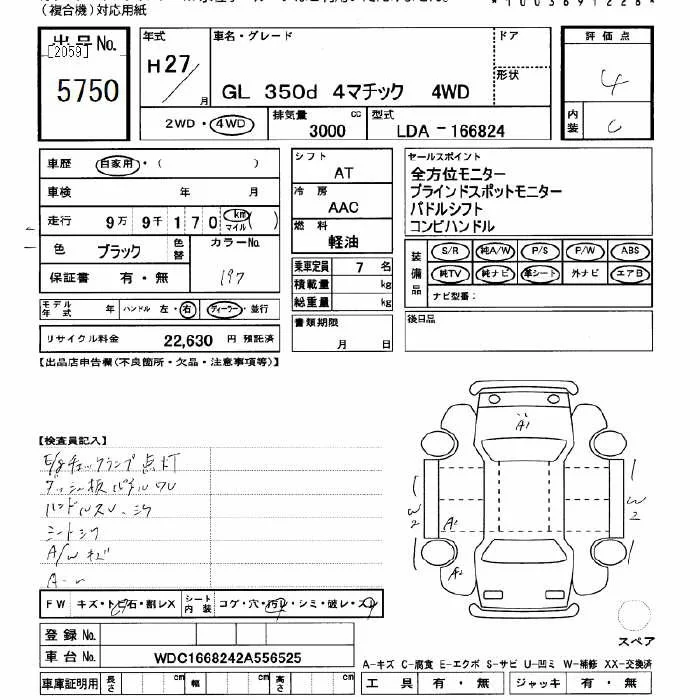 (複合機)対応用紙
*1003691226*
出品No. [2059] 5750
年式 H27/ 月
車名・グレード GL 350d 4マチック 4WD
ドア
形状
2WD・4WD 排気量 3000 cc 型式 LDA-166824
評価点 4
内装 C
車歴 自家用・( )
車検 年 月
走行 9万 9千 1 7 0 km マイル ( )
色 ブラック 色替 カラーNo. 197
保証書 有・無
モデル年式 年 ハンドル 左・右 ディーラー・並行
リサイクル料金 22,630 円 預託済
シフト AT
冷房 AAC
燃料 軽油
乗車定員 7 名
積載量 kg
総重量 kg
書類期限 月 日
セールスポイント
全方位モニター
ブラインドスポットモニター
パドルシフト
コンビハンドル
装備品 S/R 純A/W P/S P/W ABS
純TV 純ナビ 革シート 外ナビ エアB
ナビ型番:
後日品
【出品店申告欄(不良箇所・欠品・注意事項等)】
【検査員記入】
E/gチェックランプ点灯
ダッシュ板パネルワレ
ハンドルスレ・シワ
シートシワ
A/Wキズ
A1
W2
W2
A2
A2
FW キズ・トビ石・割レX シート内装 コゲ・穴・汚レ・シミ・破レ・スレ
登録No.
車台No. WDC1668242A556525
車庫証明用 長さ cm 幅 cm 高さ cm
スペア
A-キズ C-腐食 E-エクボ S-サビ U-凹ミ W-補修 XX-交換済
工具 有・無 ジャッキ 有・無